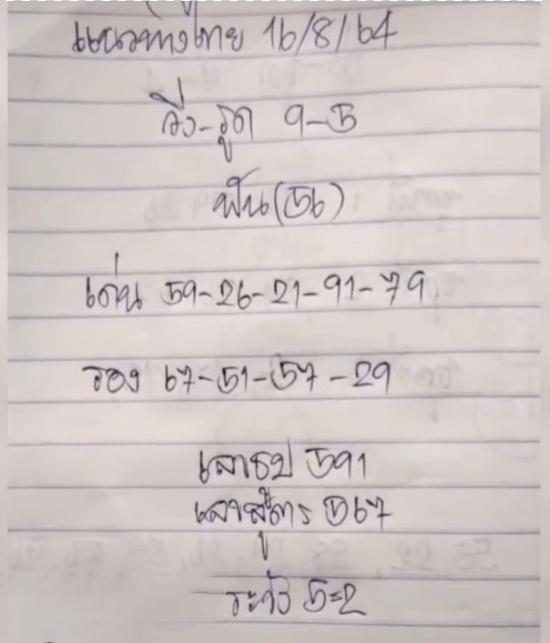 แนวทางไทย 16/8/64
วิ่ง-รูด 9-5
ฟัน(56)
เด่น 59-26-21-91-79
รอง 67-51-57-29
เลขธูป 591
เลขสูตร 567
ระวัง 5=2